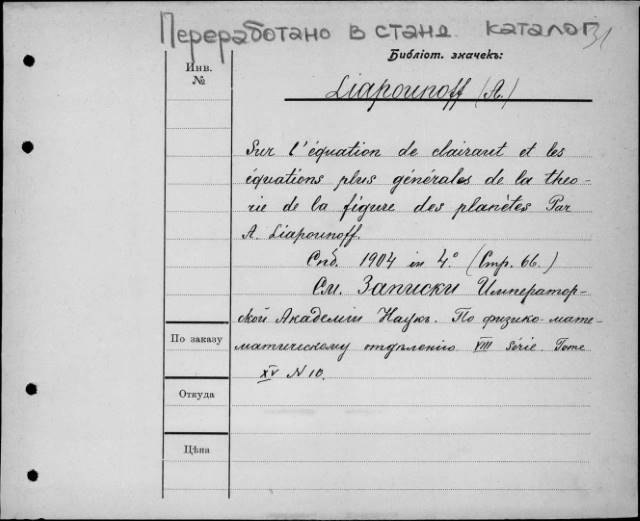 Переработано в станд. каталог
31
Библіот. значекъ:
Инв.
№
Liapounoff (A.)
Sur l'équation de clairaut et les
équations plus générales de la théo-
rie de la figure des planètes Par
A. Liapounoff.
Спб. 1904 in 4.° (Стр. 66.)
См. Записки Император-
ской Академіи Наукъ. По физико-мате-
матическому отдѣленію. VIII série. Tome
XV N 10.
По заказу
Откуда
Цѣна